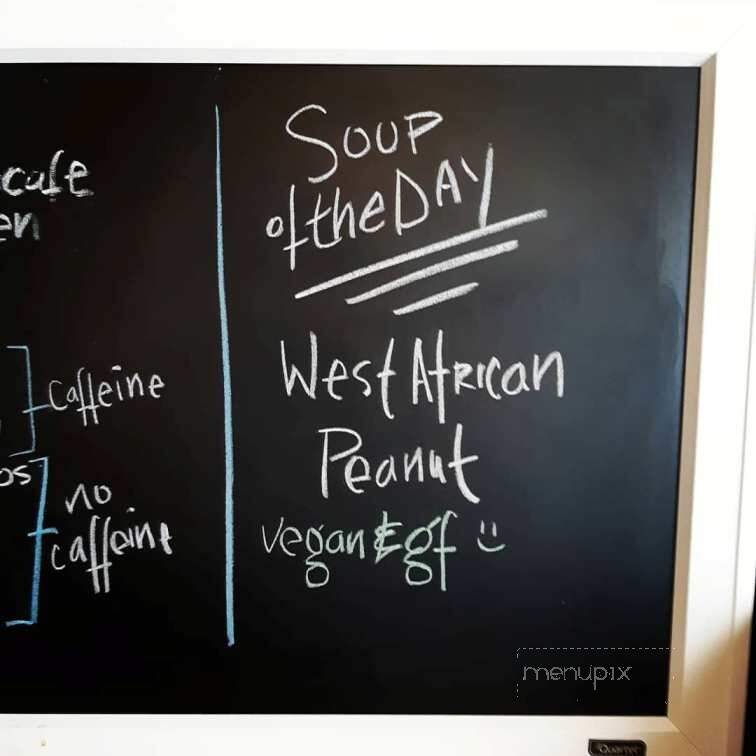 cafe
en
caffeine
os
no
caffeine
SOUP
of the DAY
West African
Peanut
vegan & gf :)
menupix
Quartet